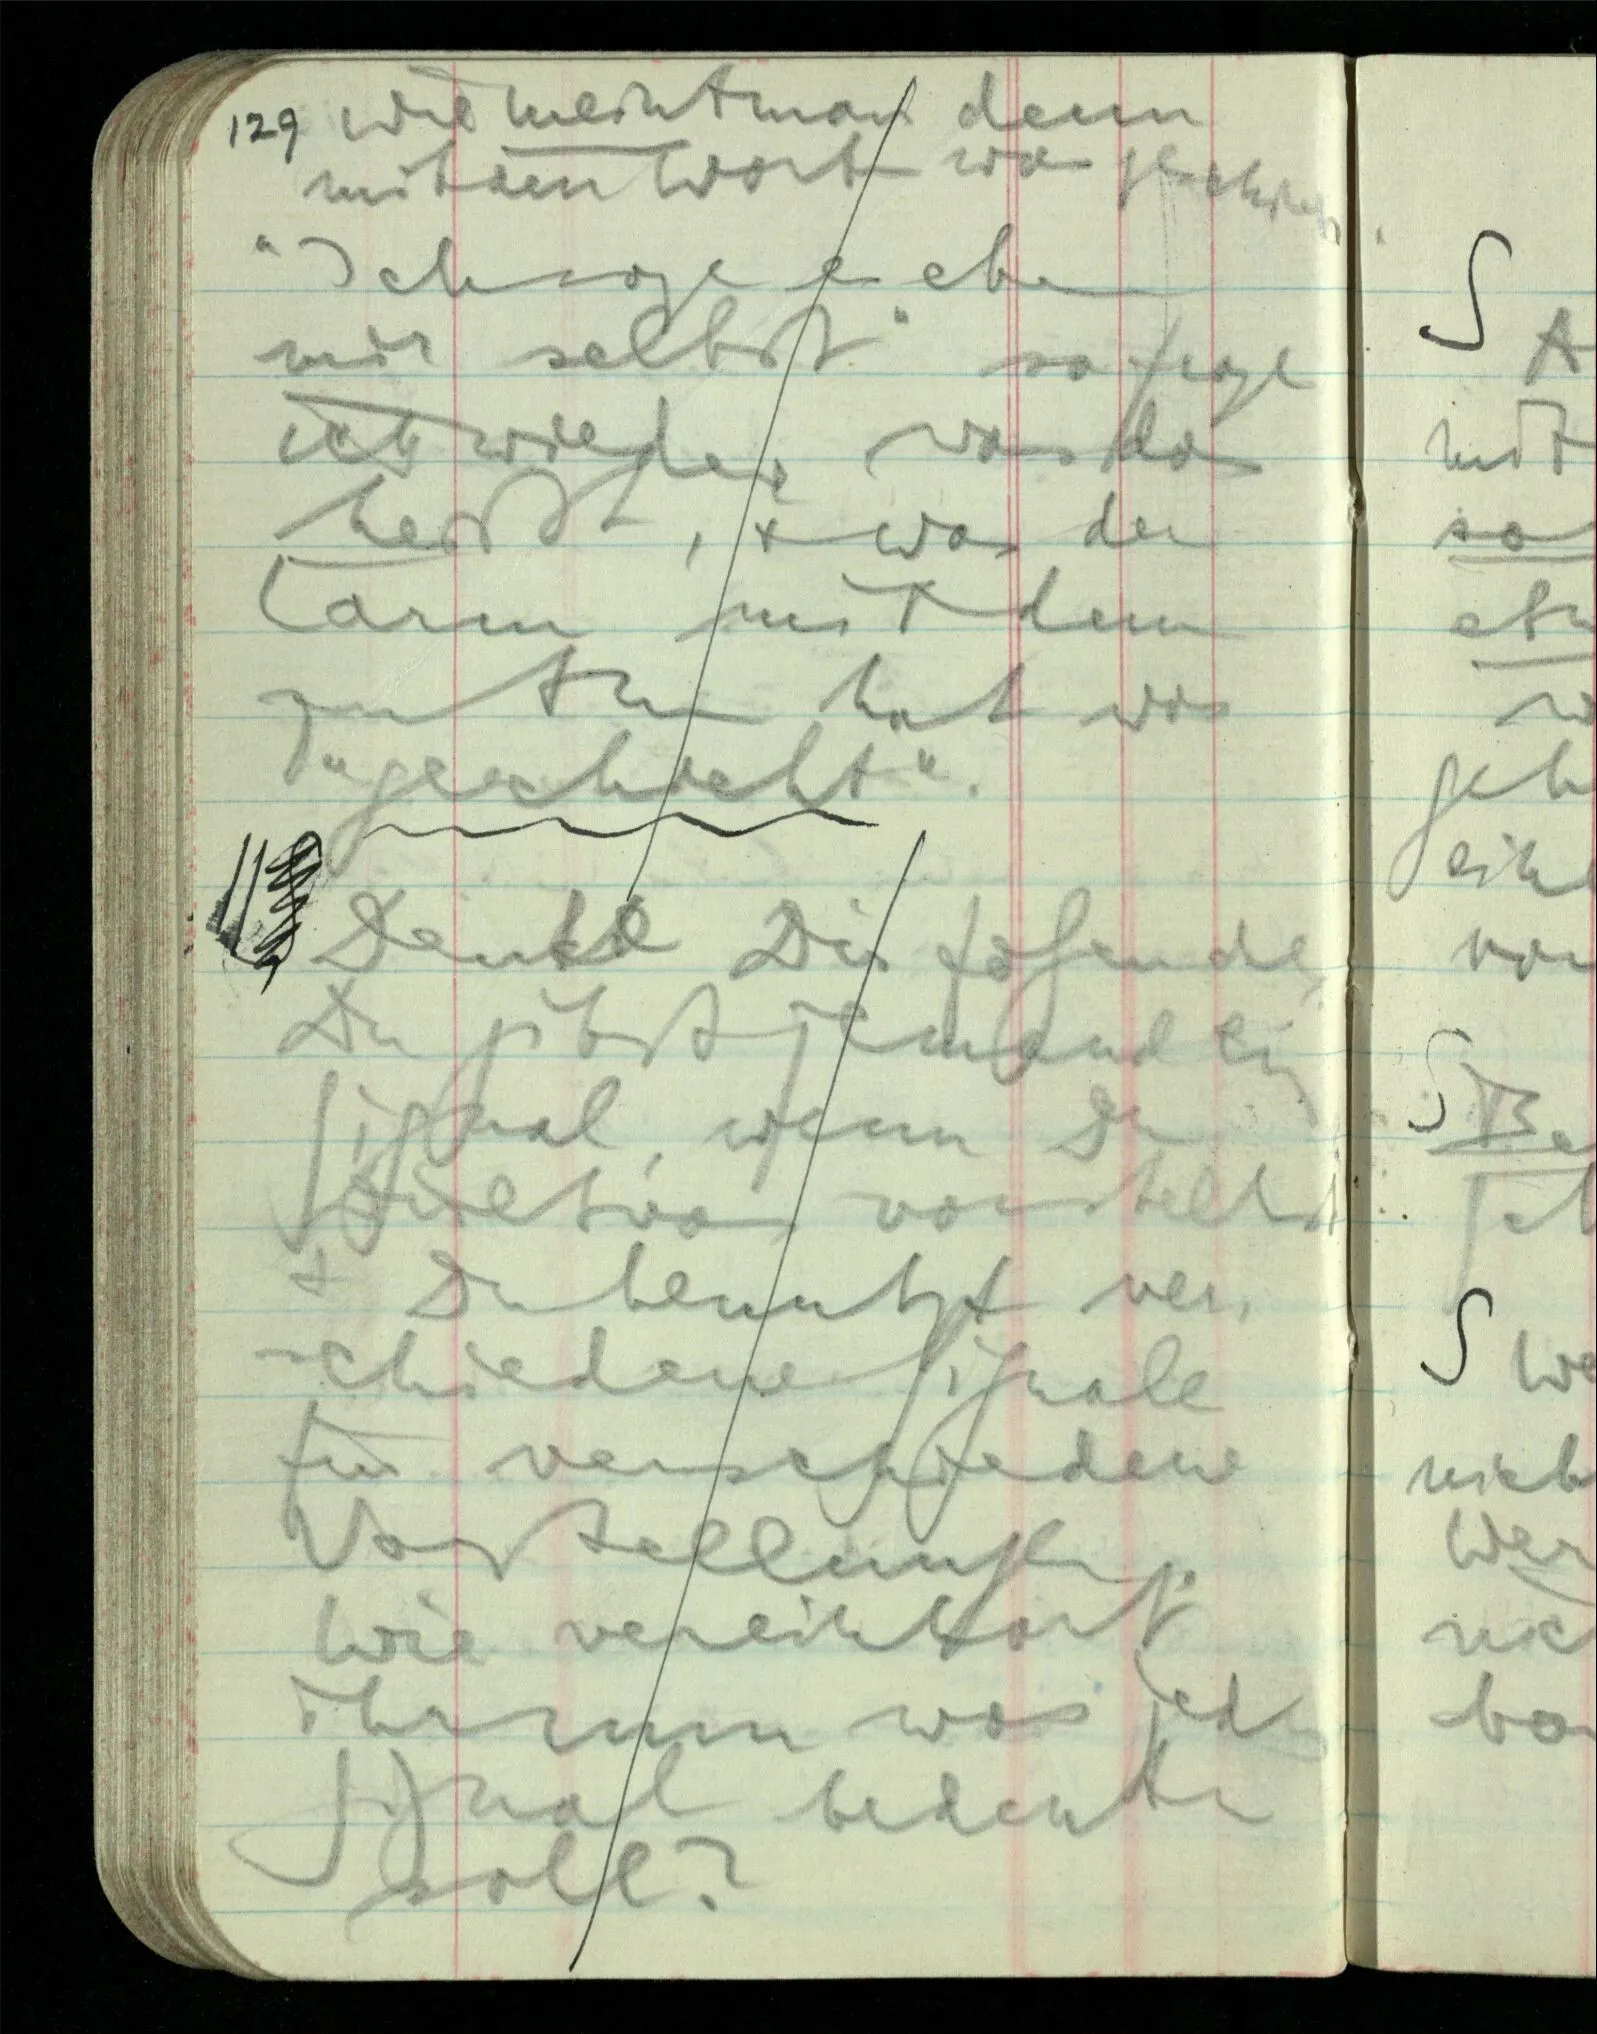 129 wie meint man denn
mit den Wort was geschieht.
"Ich sage es eben
mir selbst" so frage
ich wieder, was das
heißt, & was der
Lärm mit dem
zu tun hat was
"geschieht".
Denke Dir folgendes
Du gibst jemand ein
Signal, wenn Du
Dir etwas vorstellst
& Du benutzt ver-
schiedene Signale
für verschiedene
Vorstellungen.
Wie vereinbart
ihr nun was jedes
Signal bedeuten
soll?
S
A
mit
so
etw
geh
ein
von
S Be
S We
nich
Wer
nic